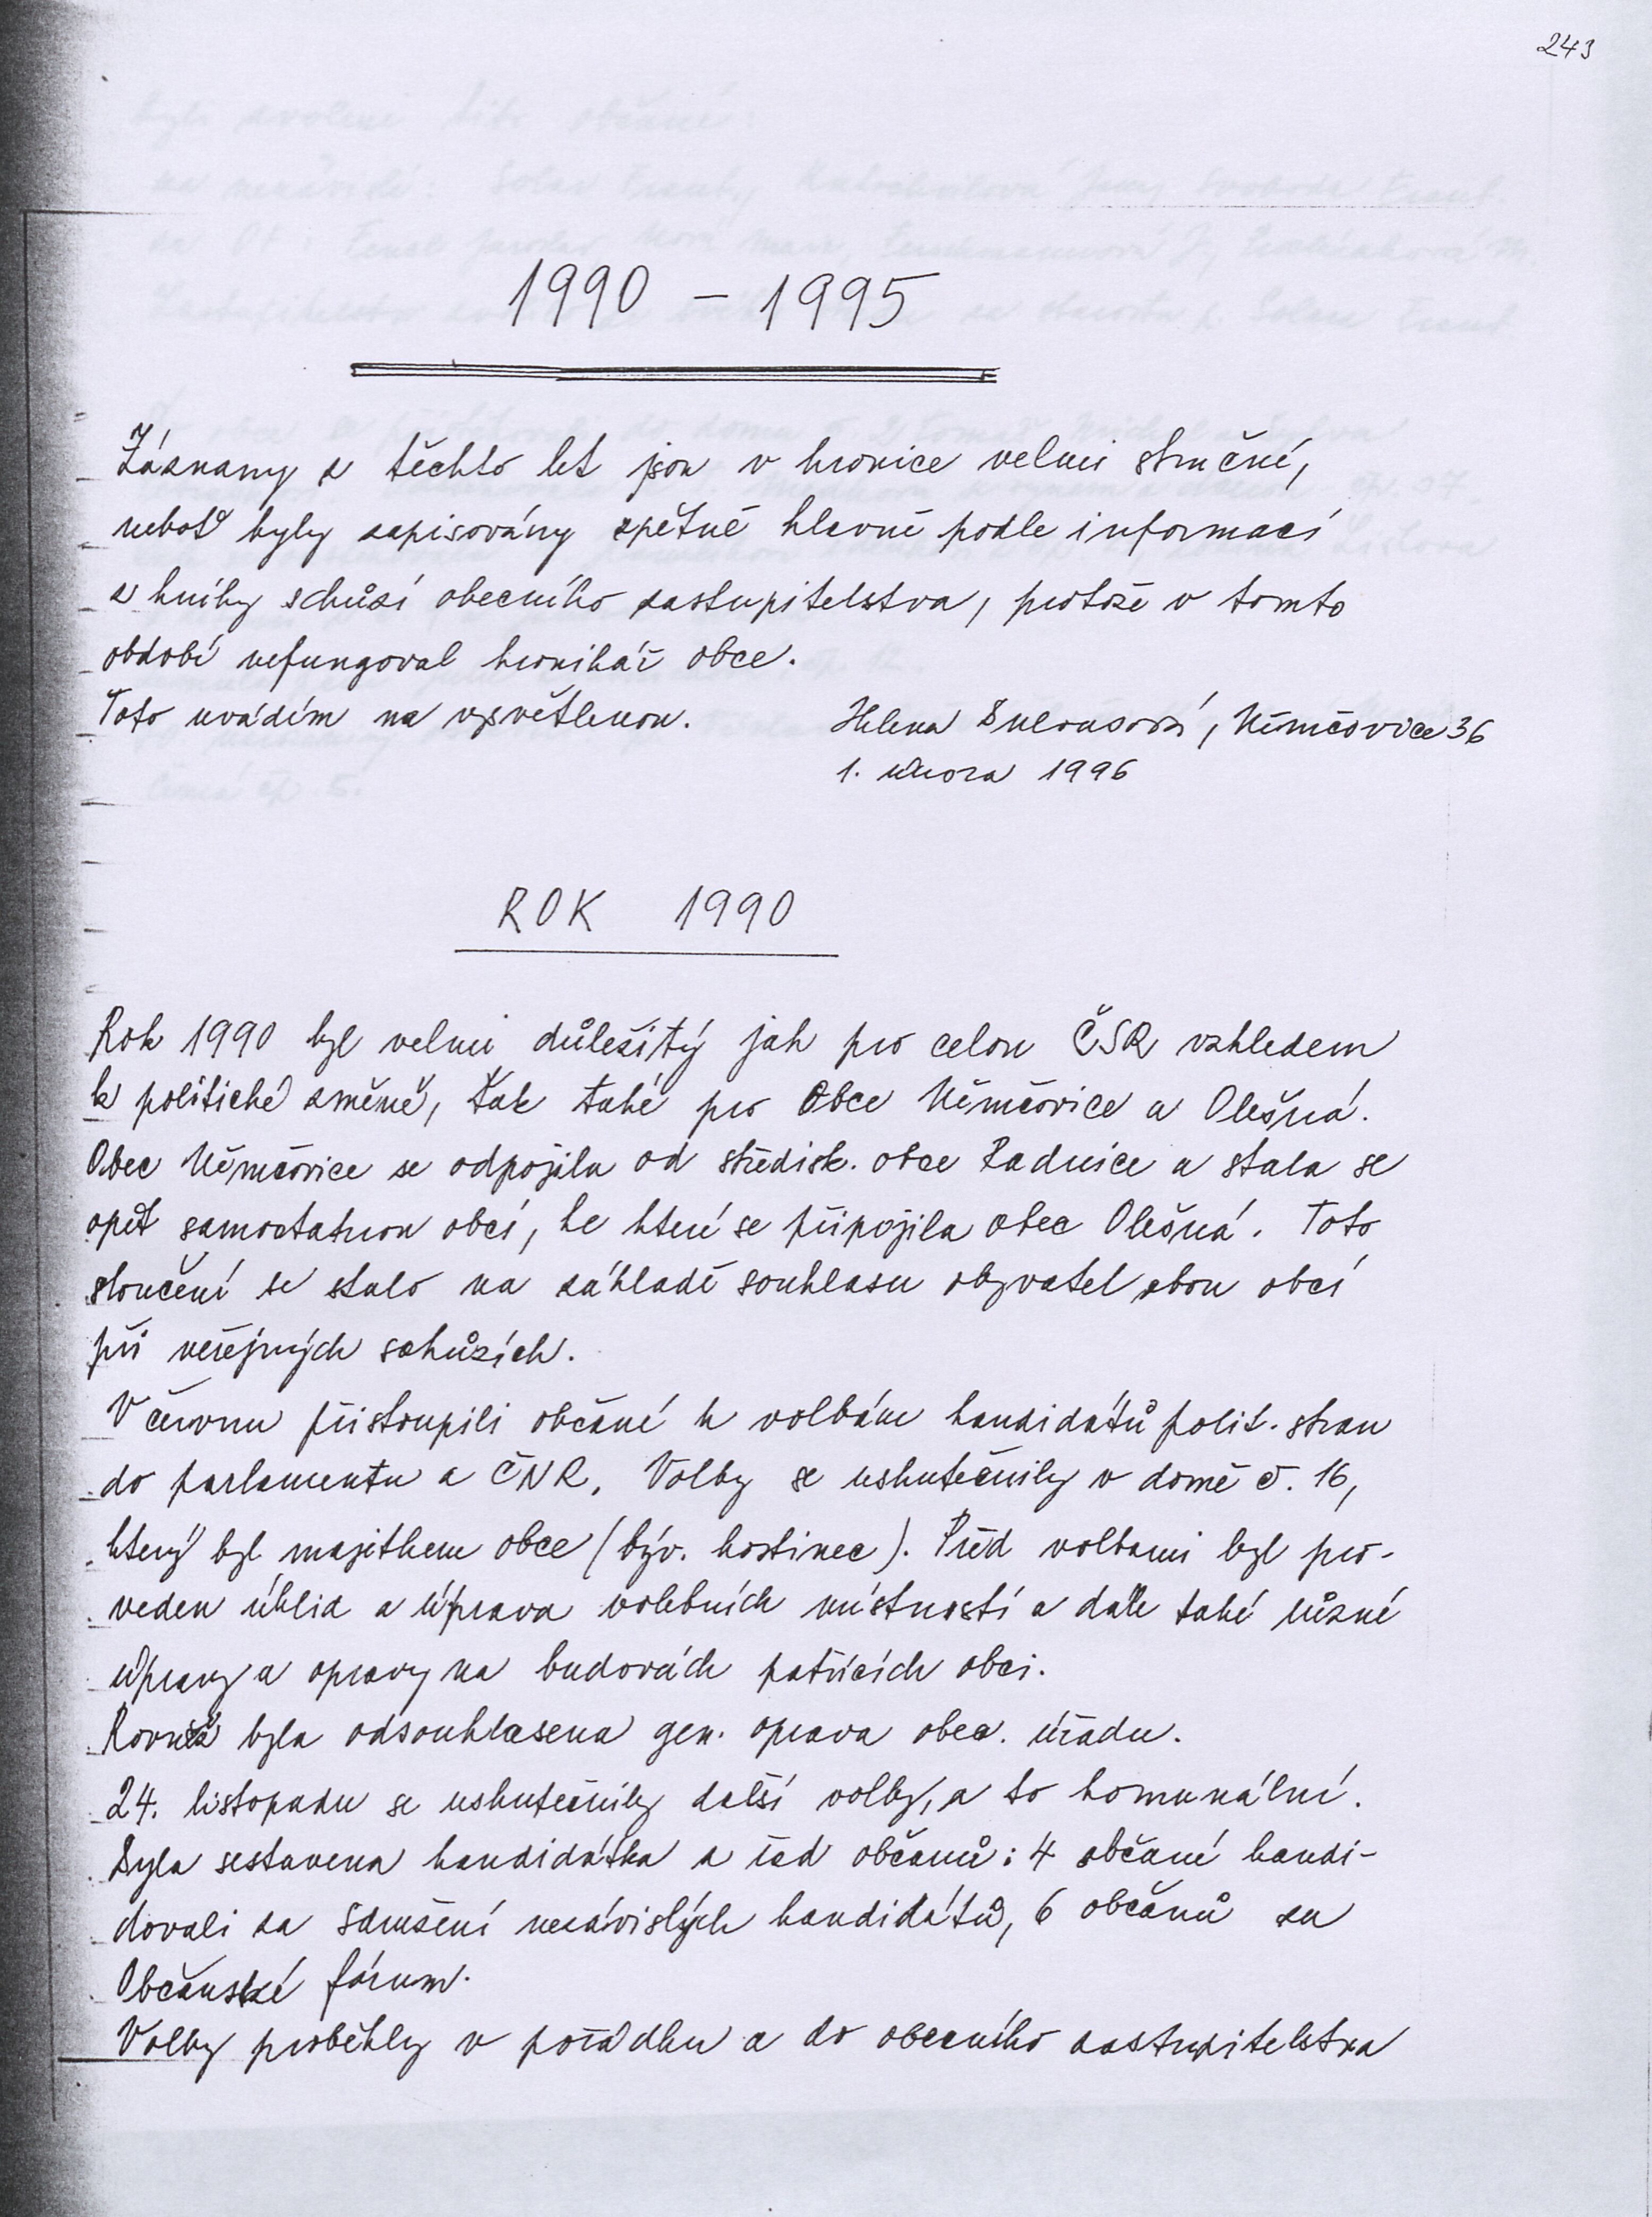 243
1990 – 1995
Záznamy z těchto let jsou v kronice velmi stručné,
neboť byly zapisovány zpětně hlavně podle informací
z knihy schůzí obecního zastupitelstva, protože v tomto
období nefungoval kronikář obce.
Toto uvádím na vysvětlenou.
Helena , Němčovice 36
1. února 1996
ROK 1990
Rok 1990 byl velmi důležitý jak pro celou ČSR vzhledem
k politické změně, tak také pro obce Němčovice a Olešná.
Obec Němčovice se odpojila od středisk. obce Radnice a stala se
opět samostatnou obcí, ke které se připojila obec Olešná. Toto
sloučení se stalo na základě souhlasu obyvatel obou obcí
při veřejných schůzích.
V červnu přistoupili občané k volbám kandidátů polit. stran
do parlamentu a ČNR. Volby se uskutečnily v domě č. 16,
který byl majetkem obce (býv. hostinec). Před volbami byl pro-
veden úklid a úprava volebních místností a dále také různé
úpravy a opravy na budovách patřících obci.
Rovněž byla odsouhlasena gen. oprava obec. úřadu.
24. listopadu se uskutečnily další volby, a to komunální.
Byla sestavena kandidátka z řad občanů: 4 občané kandi-
dovali za Sdružení nezávislých kandidátů, 6 občanů za
Občanské fórum.
Volby proběhly v pořádku a do obecního zastupitelstva